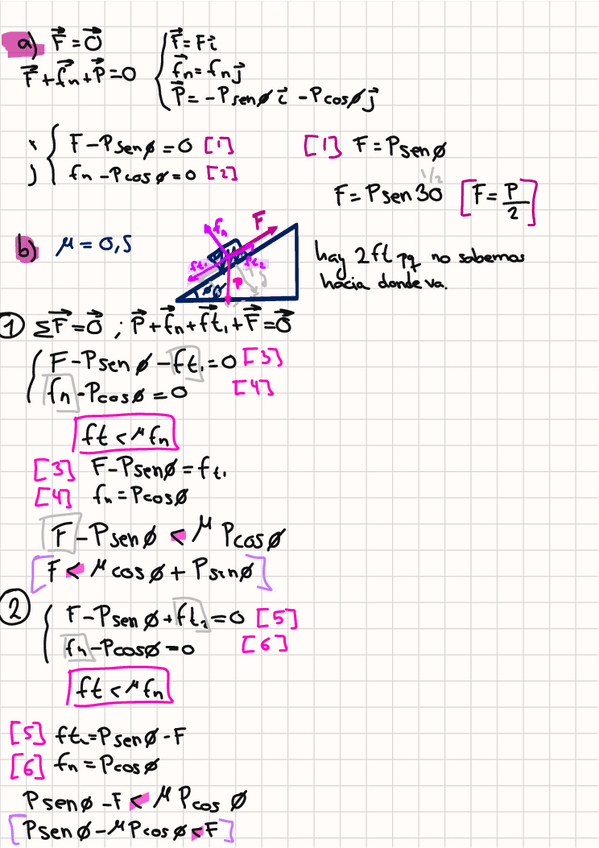 a) F⃗ = 0⃗
F⃗ + f⃗n + P⃗ = 0
F⃗ = Fi⃗
f⃗n = fn j⃗
P⃗ = -Psenø i⃗ - Pcosø j⃗
i { F - Psenø = 0 [1]
j { fn - Pcosø = 0 [2]
[1] F = Psenø
1/2
F = Psen30 [F = P/2]
b) μ = 0,5
fn F
ft1 ft2
P
ø
hay 2ft pq no sabemos
hacia donde va.
① ΣF⃗ = 0⃗ ; P⃗ + f⃗n + f⃗t1 + F⃗ = 0⃗
F - Psenø - ft1 = 0 [3]
fn - Pcosø = 0 [4]
ft < μfn
[3] F - Psenø = ft1
[4] fn = Pcosø
F - Psenø < μ Pcosø
[F < μcosø + Psenø]
② F - Psenø + ft2 = 0 [5]
fn - Pcosø = 0 [6]
ft < μfn
[5] ft2 = Psenø - F
[6] fn = Pcosø
Psenø - F < μ Pcosø
[Psenø - μPcosø < F]